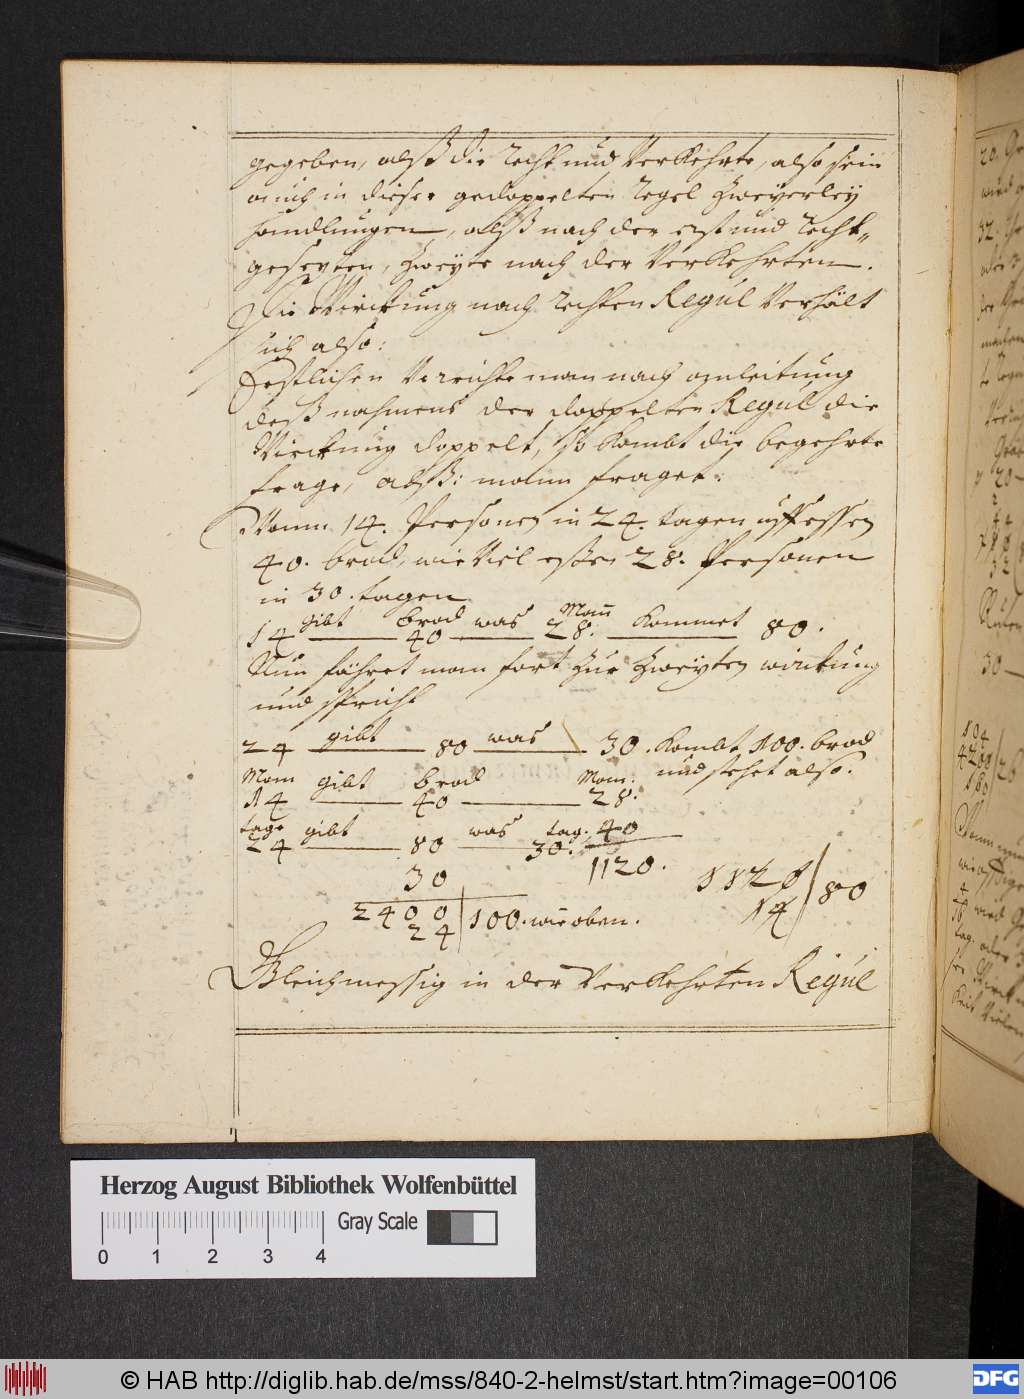 gegeben, alß die recht und Verkehrte, also sein
auch in dieser gedoppelten regel Zweÿerleÿ
handlungen, alß nach der erst und recht-
gesezten, Zweÿte nach der Verkehrten.
Die Wirckung nach rechten Regul Verhält
sich also:
Erstlichen Verricht man nach anleitung
deß nahmens der doppelten Regul die
Wirckung doppelt, so kombt die begehrte
frage, alß: mann fraget:
Wann 14. Personen in 24. tagen
40. brod, wie Viel eßen 28. Personen
in 30. tagen
14 gibt brod 40 was Man 28. Kommet 80.
Nun fähret man fort Zur Zweÿten wirckung
und spricht
24 gibt 80 was 30. kombt 100. brod
und stehet also.
Man gibt brod Man:
14 40 28.
tage gibt was tag. 40
24 80 30.
30 1120. 1120 / 80
2400 | 100. wie oben. 14
24
Gleichmessig in der Verkehrten Regul
Herzog August Bibliothek Wolfenbüttel
Gray Scale
0 1 2 3 4
© HAB http://diglib.hab.de/mss/840-2-helmst/start.htm?image=00106
DFG